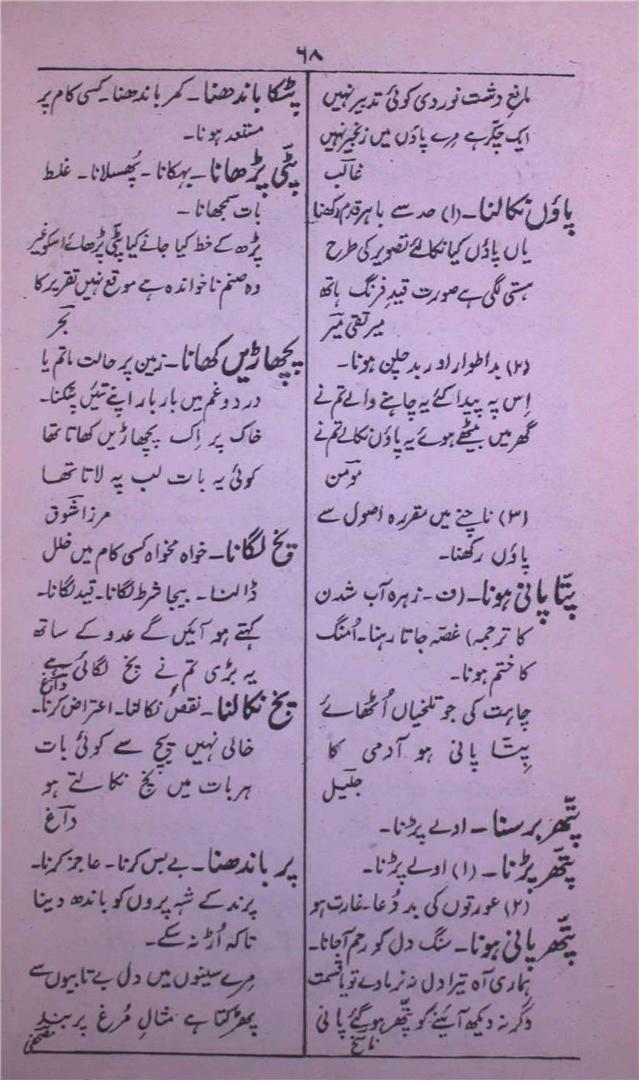 ۶۸
مانع دشت نوردی کوئی تدبیر نہیں
ایک چکر ہے مرے پاؤں میں زنجیر نہیں
غالب
پاؤں نکالنا۔ (۱) حد سے باہر قدم رکھنا
یاں پاؤں کیا نکالئے تصویر کی طرح
ہستی لگی ہے صورت قیدِ فرنگ ہاتھ
میر تقی میر
(۲) بد اطوار اور بد چلن ہونا۔
اِس پہ پیدا کئے یہ چاہنے والے تم نے
گھر میں بیٹھے ہوئے یہ پاؤں نکالے تم نے
مومن
(۳) ناچنے میں مقررہ اصول سے
پاؤں رکھنا۔
پتّا پانی ہونا۔ (ف۔ زہرہ آب شدن
کا ترجمہ) غصہ جاتا رہنا۔ اُمنگ
کا ختم ہونا۔
چاہت کی جو تلخیاں اُٹھائے
پِتّا پانی ہو آدمی کا
جلیل
پتّھر برسنا۔ اولے پڑنا۔
پتّھر پڑنا۔ (۱) اولے پڑنا۔
(۲) عورتوں کی بد دُعا۔ غارت ہو
پتّھر پانی ہونا۔ سنگ دل کو رحم آجانا۔
ہماری آہ تیرا دل نہ نرمادے تو یا قسمت
وگرنہ دیکھ آئینے کو پتّھر ہو گئے پانی
ناسخ
پٹکا باندھنا۔ کمر باندھنا۔ کسی کام پر
مستعد ہونا۔
پٹّی پڑھانا۔ بہکانا۔ پُھسلانا۔ غلط
بات سمجھانا۔
پڑھ کے خط کیا جانے کیا پٹّی پڑھائے اسکو غیر
وہ صنم ناخواندہ ہے موقع نہیں تقریر کا
بحر
پچھاڑیں کھانا۔ زمین پر حالت ماتم یا
درد و غم میں بار بار اپنے تئیں پٹکنا۔
خاک پر اِک پچھاڑیں کھاتا تھا
کوئی یہ بات لب پہ لاتا تھا
مرزا شوق
پخ لگانا۔ خواہ مخواہ کسی کام میں خلل
ڈالنا۔ بیجا شرط لگانا۔ قید لگانا۔
کہتے ہو آئیں گے عدو کے ساتھ
یہ بڑی تم نے پخ لگائی ہے
داغ
پخ نکالنا۔ نقص نکالنا۔ اعتراض کرنا۔
خالی نہیں پیچ سے کوئی بات
ہر بات میں پخ نکالتے ہو
داغ
پر باندھنا۔ بے بس کرنا۔ عاجز کرنا۔
پرند کے شہ پروں کو باندھ دینا
تاکہ اُڑ نہ سکے۔
مرے سینوں میں دل بے تابیوں سے
پھڑکتا ہے مثالِ مُرغ پر بند
مصحفی